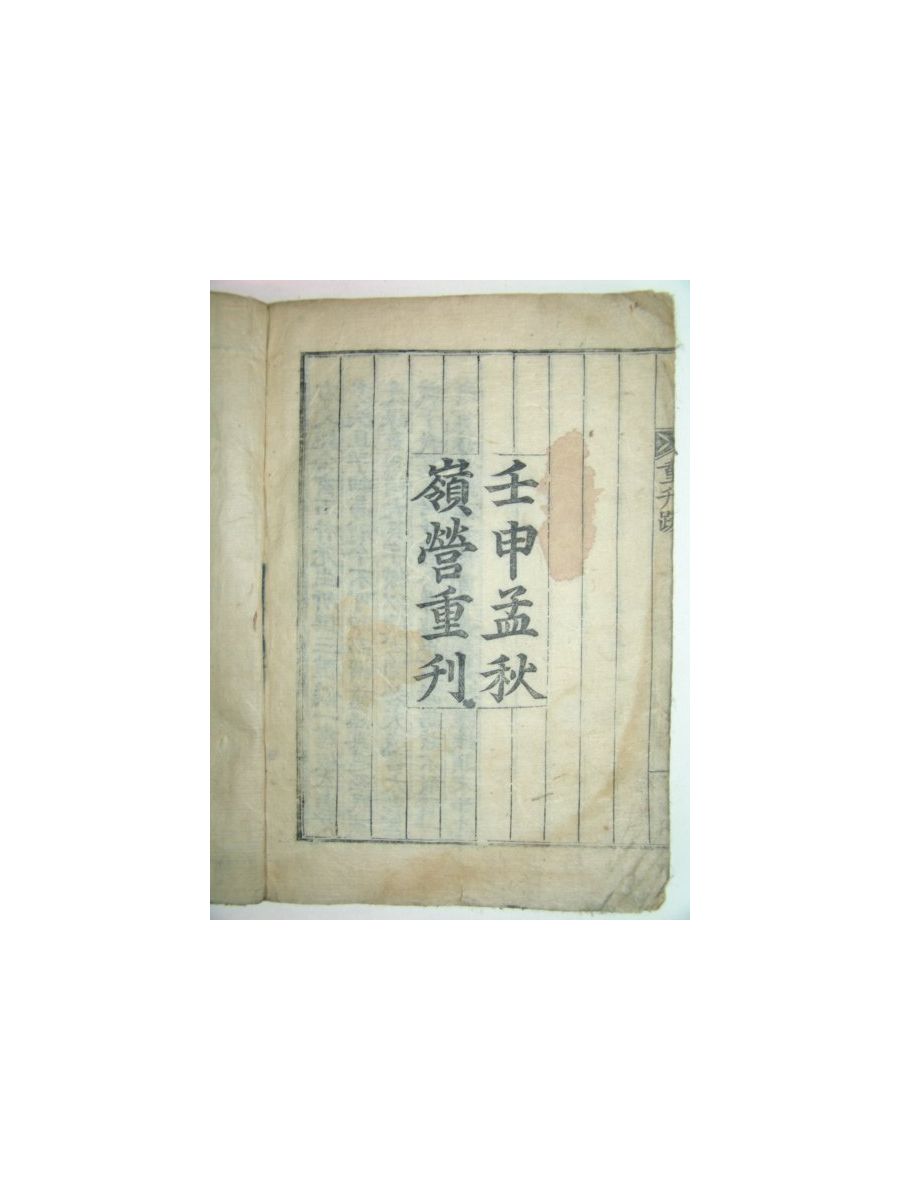 重刋跋
壬申孟秋
嶺營重刋